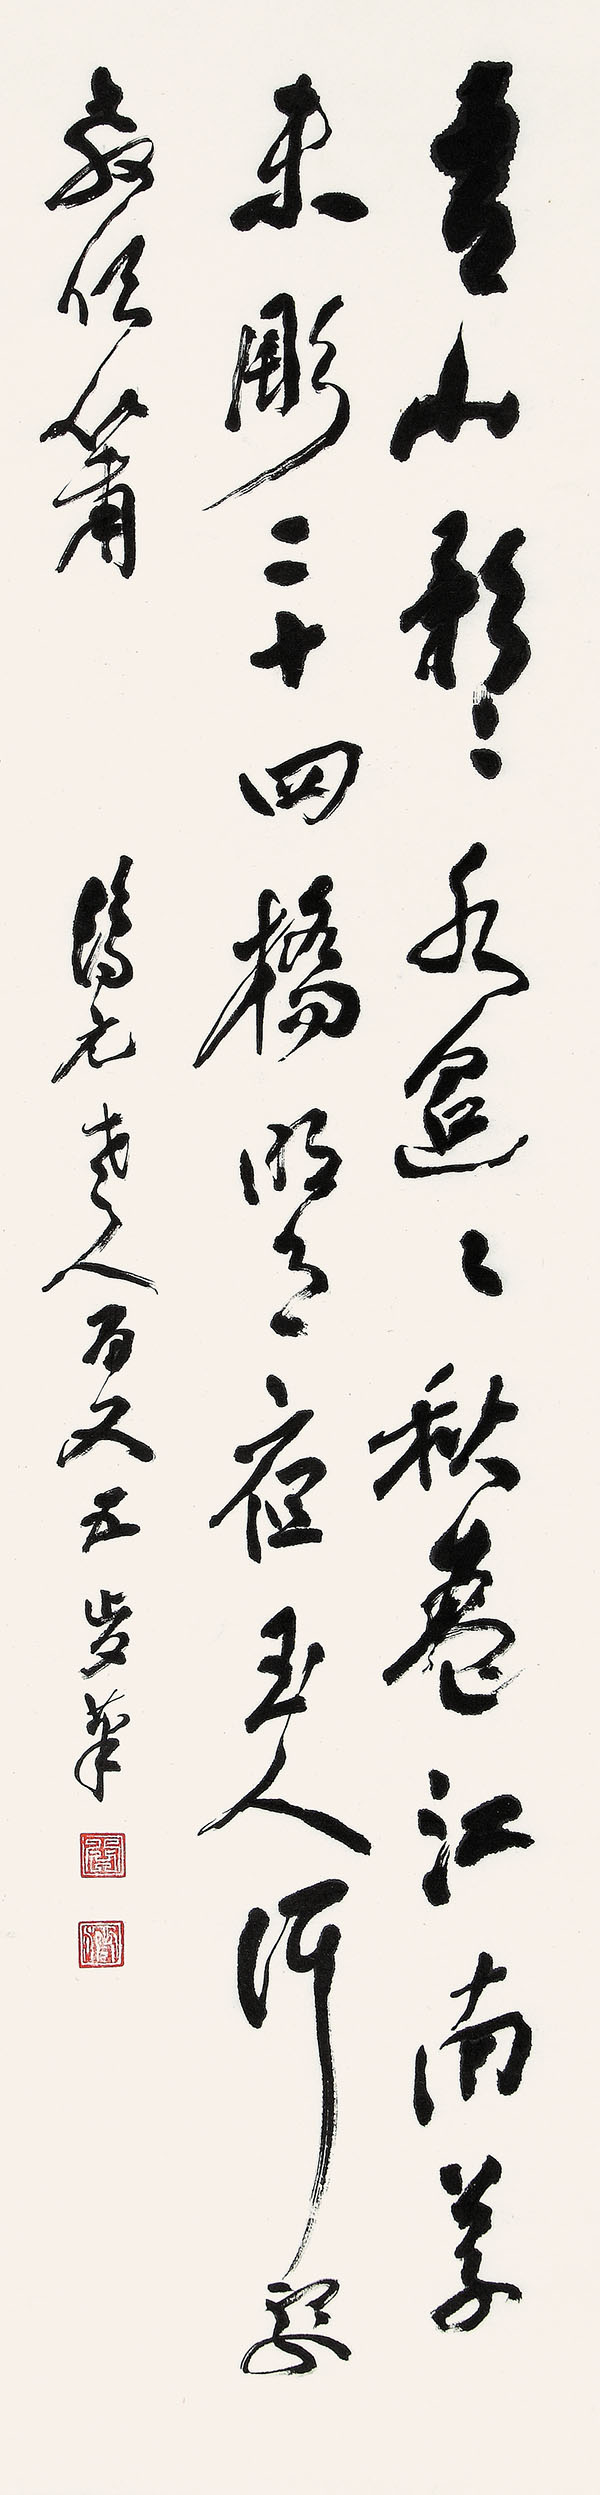 青山影〻水迢〻秋盡江南草
未彫二十四橋明月夜玉人何處
教吹簫
老人百又五歲筆